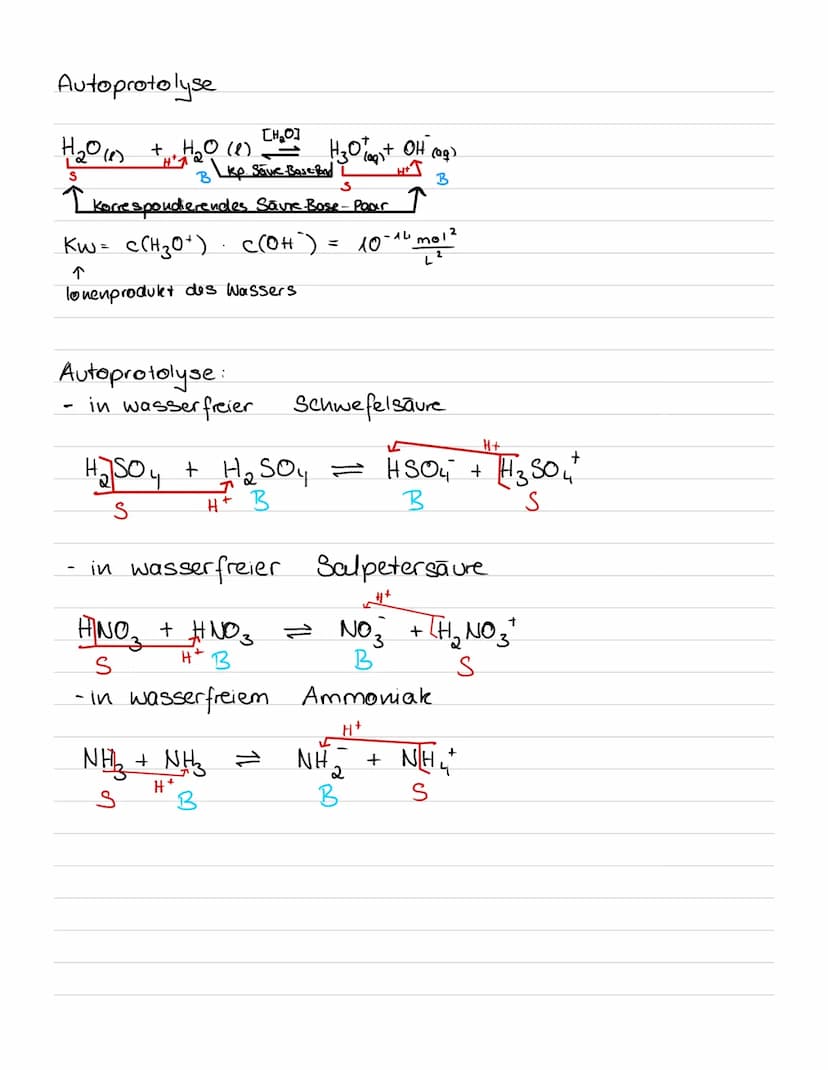 Autoprotolyse
[H₂O]
H₂O (l) + H₂O (l) ⇌ H₃O⁺(aq) + OH⁻(aq)
H⁺ H⁺
S B S B
Korrespondierendes Säure-Base-Paar
Kw = c(H₃O⁺) · c(OH⁻) = 10⁻¹⁴ mol²/L²
↑
Ionenprodukt des Wassers
Autoprotolyse:
- in wasserfreier Schwefelsäure
H+
H₂SO₄ + H₂SO₄ ⇌ HSO₄⁻ + H₃SO₄⁺
S H⁺ B B S
- in wasserfreier Salpetersäure
H⁺
HNO₃ + HNO₃ ⇌ NO₃⁻ + H₂NO₃⁺
S H⁺ B B S
- in wasserfreiem Ammoniak
H⁺
NH₃ + NH₃ ⇌ NH₂⁻ + NH₄⁺
H⁺
S B B S